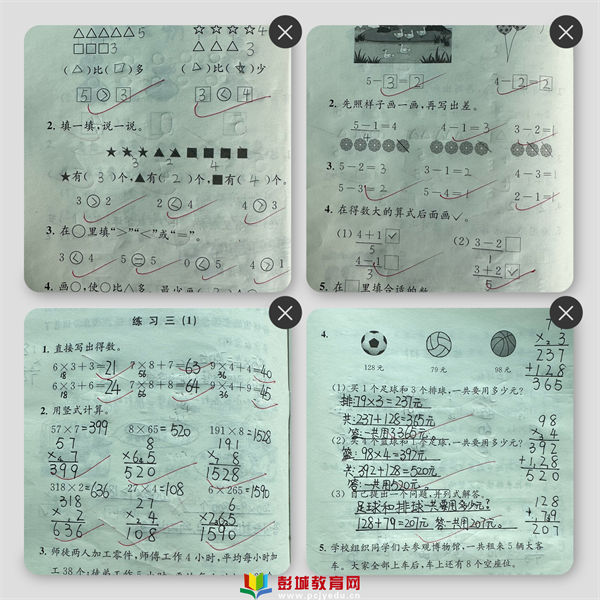 5
3
4
3
(△)比(□)多
(△)比(☆)少
5 > 3
3 < 4
2. 填一填,说一说。
3 2 4
★有(3)个,▲有(2)个,■有(4)个。
3 > 2
2 < 4
4 > 3
3. 在○里填“>”“<”或“=”。
3 < 4
5 = 5
0 < 5
4 > 1
5-3=2
4-2=2
2. 先照样子画一画,再写出差。
5-1=4
4-1=3
3-2=1
3. 5-2=3
4-1=3
4-3=1
5-3=2
5-4=1
2-1=1
4. 在得数大的算式后面画✓。
(1) 4+1 ✓
(2) 3-2
5
1
4-1
3+2 ✓
3
5
练习三(1)
1. 直接写出得数。
6×3+3=21 7×8+7=63 9×4+4=40
18 56 36
6×3+6=24 7×8+8=64 9×4+9=45
18 56 36
2. 用竖式计算。
57×7=399 8×65=520 191×8=1528
57 8 191
×7 ×65 ×8
399 520 1528
318×2=636 27×4=108 6×265=1590
318 27 6
×2 ×4 ×265
636 108 1590
3. 师徒两人加工零件,师傅工作4小时,平均每小时加
4.
128元 79元 98元
×3
237
+128
365
(1) 买1个足球和3个排球,一共要用多少元?
排:79×3=237元
共:237+128=365元
答:一共用365元。
(2) 买4个篮球和1个足球,一共要用多少元?
篮:98×4=392元
共:392+128=520元
答:一共用520元。
98
×4
392
+128
520
(3) 自己提出一个问题,并列式解答。
足球和排球一共要用多少元?
128+79=207元 答:一共用207元。
128
+79
207
5. 学校组织同学们去参观博物馆,一共租来5辆大客
车。大家全部上车后,车上还有8个空座位。
彭城教育网
www.pcjyedu.cn